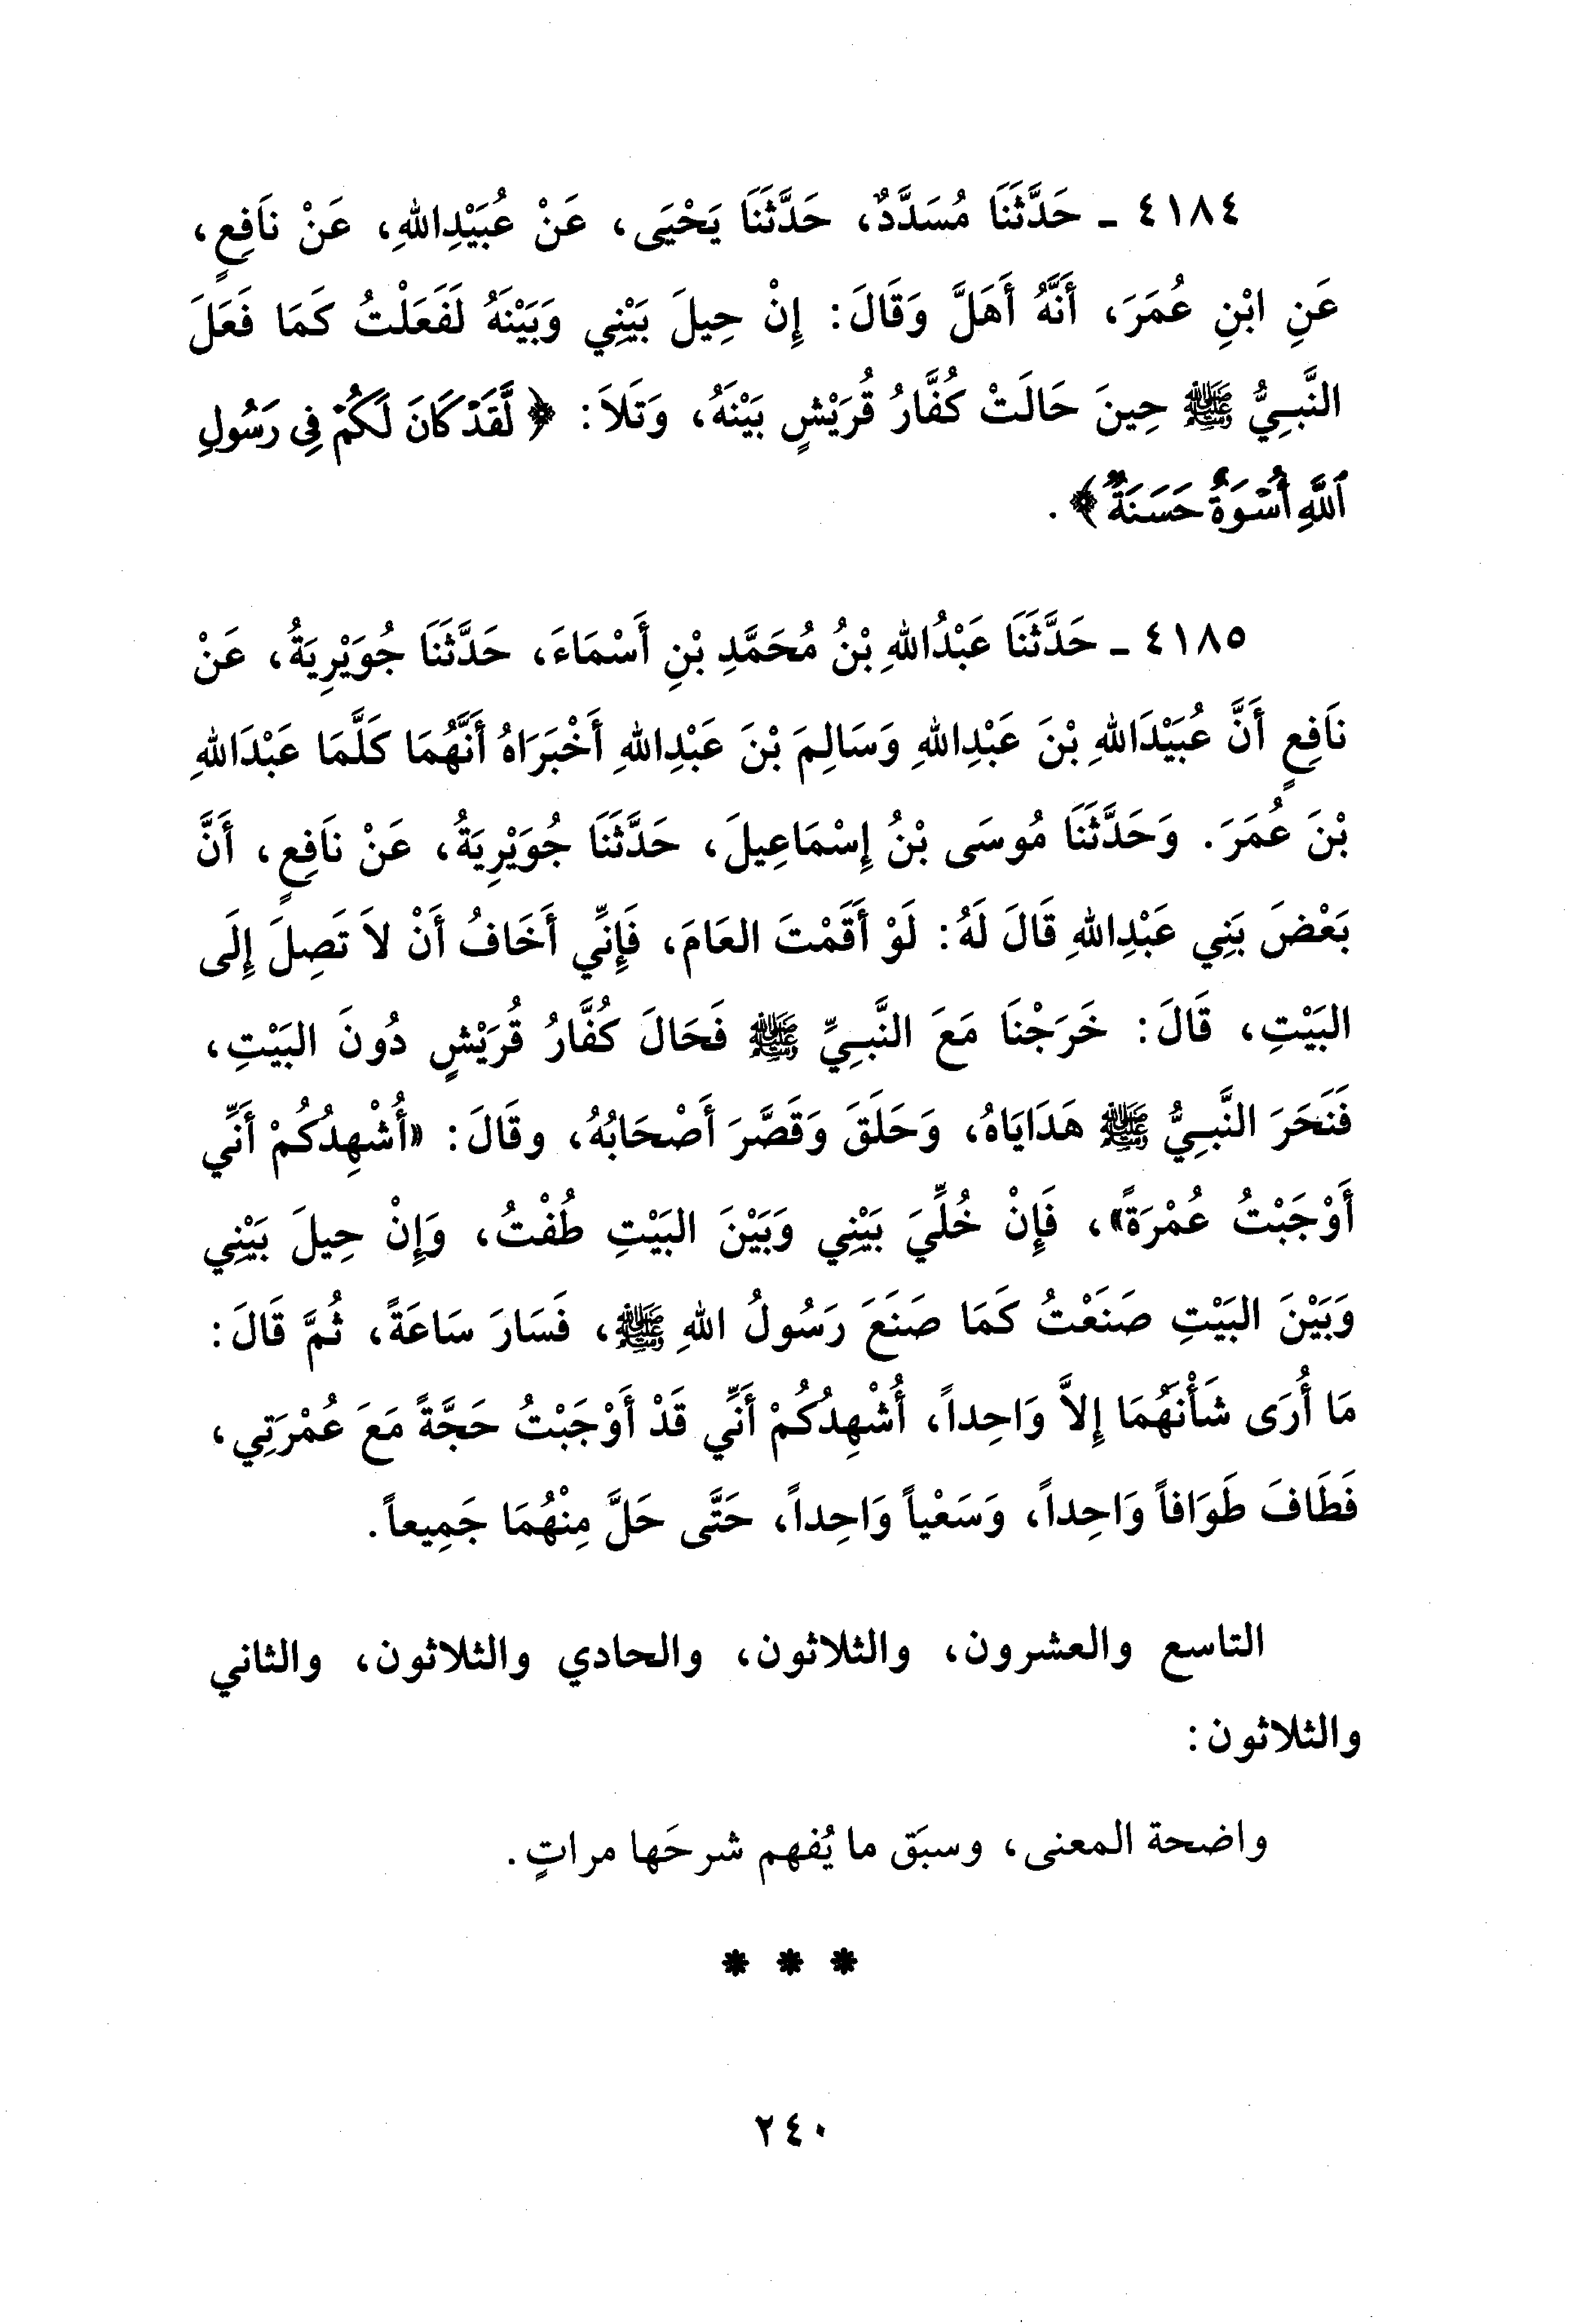 ٤١٨٤ ـ حَدَّثَنَا مُسَدَّدٌ، حَدَّثَنَا يَحْيَى، عَنْ عُبَيْدِاللهِ، عَنْ نَافِعٍ،
عَنِ ابْنِ عُمَرَ، أَنَّهُ أَهَلَّ وَقَالَ: إِنْ حِيلَ بَيْنِي وَبَيْنَهُ لَفَعَلْتُ كَمَا فَعَلَ
النَّبِيُّ ﷺ حِينَ حَالَتْ كُفَّارُ قُرَيْشٍ بَيْنَهُ، وَتَلاَ: ﴿لَّقَدْ كَانَ لَكُمْ فِي رَسُولِ
ٱللَّهِ أُسْوَةٌ حَسَنَةٌ﴾.
٤١٨٥ ـ حَدَّثَنَا عَبْدُاللهِ بْنُ مُحَمَّدِ بْنِ أَسْمَاءَ، حَدَّثَنَا جُوَيْرِيَةُ، عَنْ
نَافِعٍ أَنَّ عُبَيْدَاللهِ بْنَ عَبْدِاللهِ وَسَالِمَ بْنَ عَبْدِاللهِ أَخْبَرَاهُ أَنَّهُمَا كَلَّمَا عَبْدَاللهِ
بْنَ عُمَرَ. وَحَدَّثَنَا مُوسَى بْنُ إِسْمَاعِيلَ، حَدَّثَنَا جُوَيْرِيَةُ، عَنْ نَافِعٍ، أَنَّ
بَعْضَ بَنِي عَبْدِاللهِ قَالَ لَهُ: لَوْ أَقَمْتَ العَامَ، فَإِنِّي أَخَافُ أَنْ لاَ تَصِلَ إِلَى
البَيْتِ، قَالَ: خَرَجْنَا مَعَ النَّبِيِّ ﷺ فَحَالَ كُفَّارُ قُرَيْشٍ دُونَ البَيْتِ،
فَنَحَرَ النَّبِيُّ ﷺ هَدَايَاهُ، وَحَلَقَ وَقَصَّرَ أَصْحَابُهُ، وقَالَ: «أُشْهِدُكُمْ أَنِّي
أَوْجَبْتُ عُمْرَةً»، فَإِنْ خُلِّيَ بَيْنِي وَبَيْنَ البَيْتِ طُفْتُ، وَإِنْ حِيلَ بَيْنِي
وَبَيْنَ البَيْتِ صَنَعْتُ كَمَا صَنَعَ رَسُولُ اللهِ ﷺ، فَسَارَ سَاعَةً، ثُمَّ قَالَ:
مَا أُرَى شَأْنَهُمَا إِلاَّ وَاحِداً، أُشْهِدُكُمْ أَنِّي قَدْ أَوْجَبْتُ حَجَّةً مَعَ عُمْرَتِي،
فَطَافَ طَوَافاً وَاحِداً، وَسَعْياً وَاحِداً، حَتَّى حَلَّ مِنْهُمَا جَمِيعاً.
التاسع والعشرون، والثلاثون، والحادي والثلاثون، والثاني
والثلاثون:
واضحة المعنى، وسبَق ما يُفهم شرحَها مراتٍ.
* * *
٢٤٠